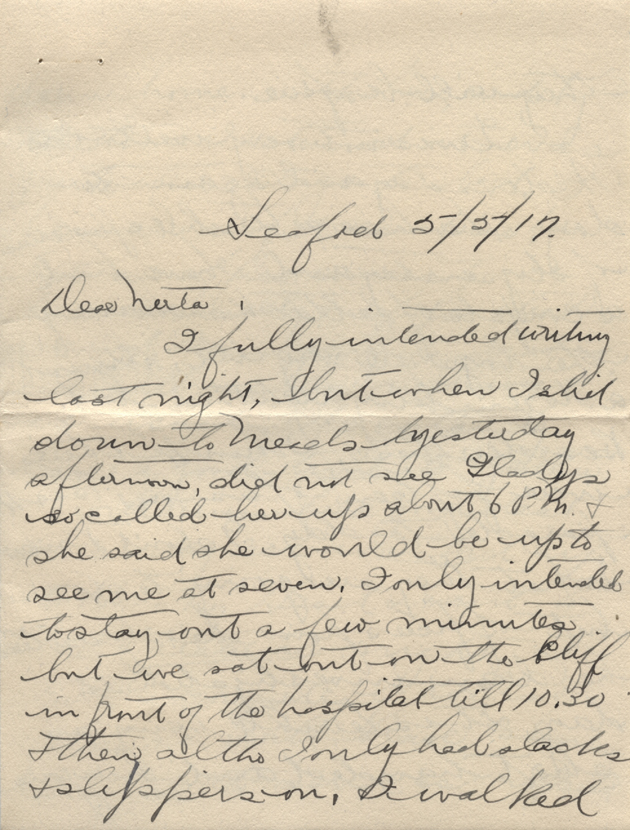 Seaford 5/5/17.
Dear Nerta,
I fully intended writing
last night, but when I slid
down to Meads yesterday
afternoon, did not see Gladys
so called her up about 6 P.M. +
she said she would be up to
see me at seven. I only intended
to stay out a few minutes
but we sat out on the Cliff
in front of the hospital till 10.30
+ then altho I only had slacks
+ slippers on, I walked